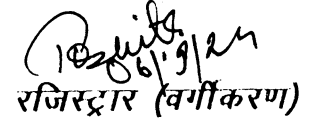 6/9/24
रजिस्ट्रार (वर्गीकरण)